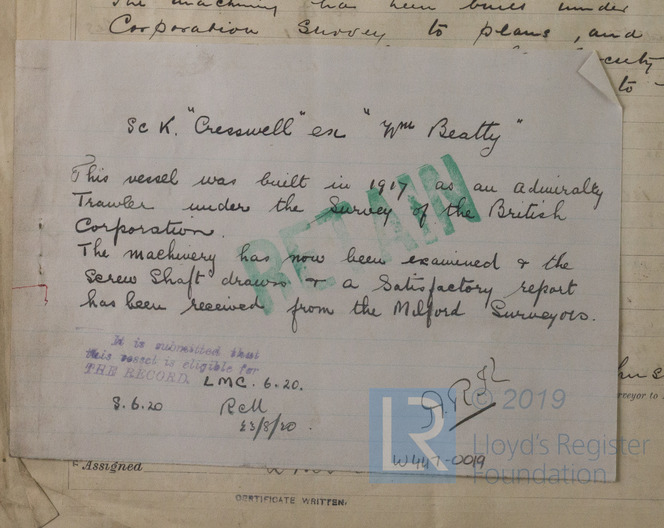 The machinery has been built under
Corporation Survey to plans, and
to
Sc K. "Cresswell" ex "Wm Beatty"
This vessel was built in 1917 as an Admiralty
Trawler under the Survey of the British
Corporation.
The machinery has now been examined & the
Screw Shaft drawn & a Satisfactory report
has been received from the Milford Surveyors.
RETAIN
It is submitted that
this vessel is eligible for
THE RECORD. LMC. 6.20.
8.6.20 RCM
23/8/20.
LR
© 2019
Lloyd's Register
Foundation
W447-0019
Assigned
CERTIFICATE WRITTEN.